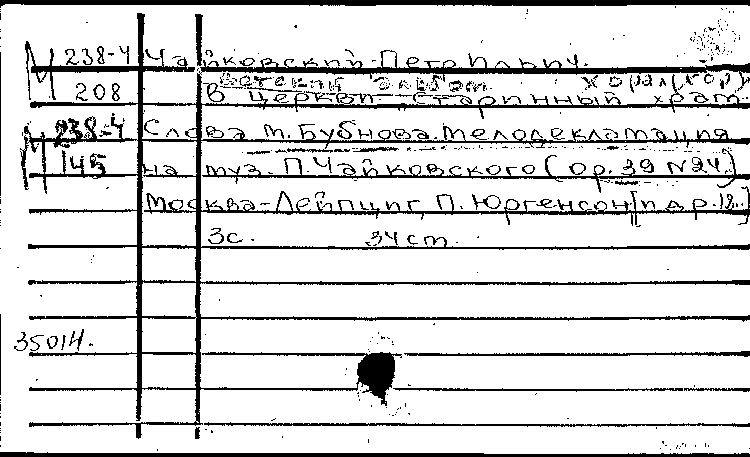 М 238-4 Чайковский Петр Ильич.
208 Детский альбом. Хорал (гор)
В церкви - старинный храм.
М 238-4 Слова М. Бубнова. Мелодекламация
145 на муз. П. Чайковского (Ор. 39 N 24.)
Москва-Лейпциг, П. Юргенсон [п.д.р. 18..]
3с. 34 ст.
35014.